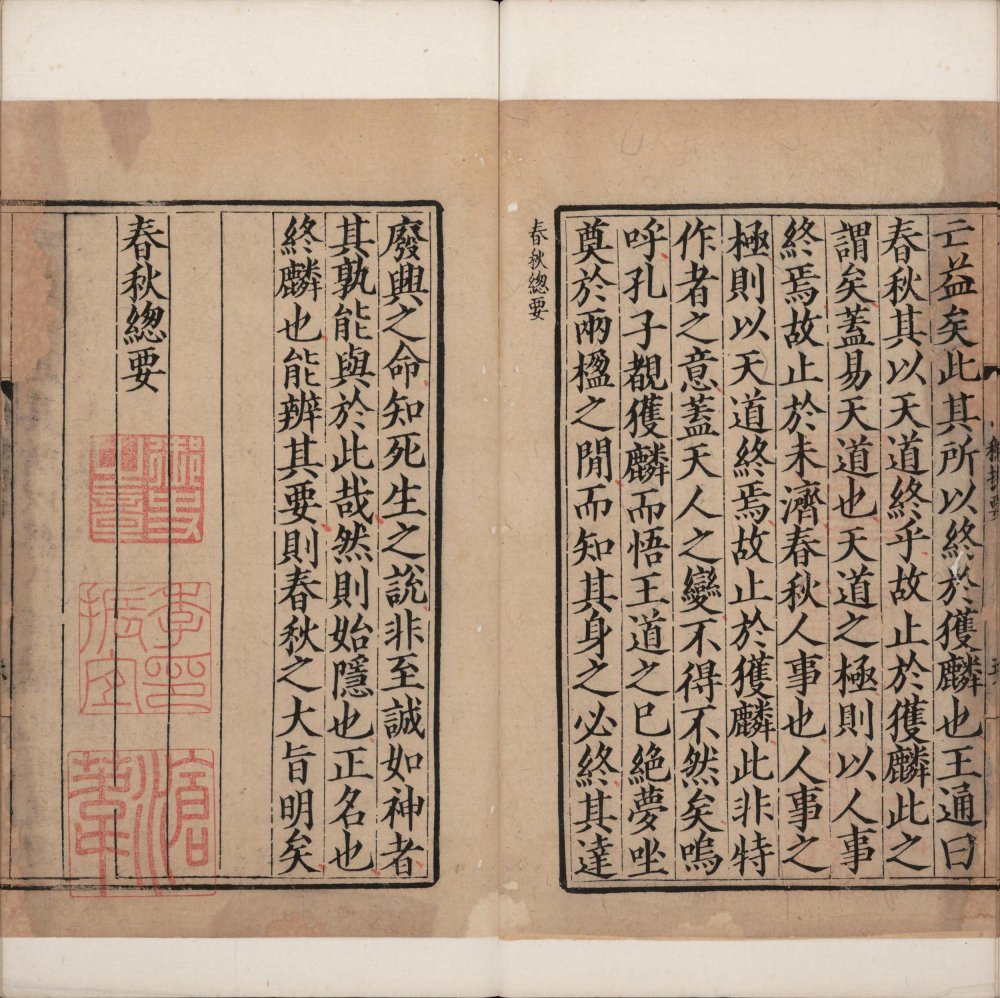 亡益矣此其所以終於獲麟也王通曰
春秋其以天道終乎故止於獲麟此之
謂矣蓋易天道也天道之極則以人事
終焉故止於未濟春秋人事也人事之
極則以天道終焉故止於獲麟此非特
作者之意蓋天人之變不得不然矣嗚
呼孔子覩獲麟而悟王道之已絶夢坐
奠於兩楹之閒而知其身之必終其達
春秋總要
廢興之命知死生之說非至誠如神者
其孰能與於此哉然則始隱也正名也
終麟也能辨其要則春秋之大旨明矣
春秋總要
季印
振宜
滄葦